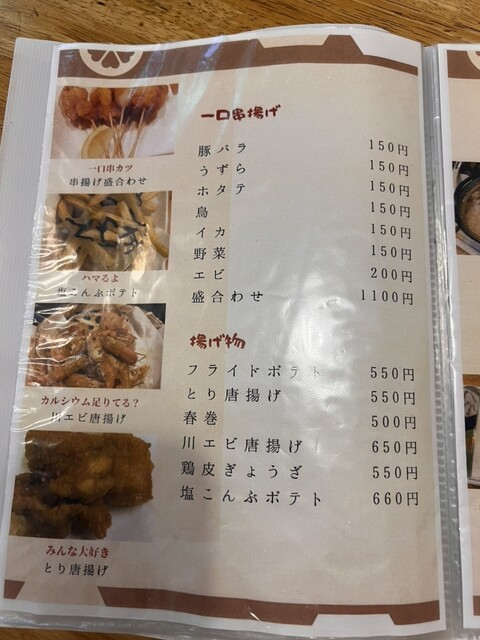 一口串カツ
串揚げ盛合わせ
ハマるよ
塩こんぶポテト
カルシウム足りてる?
川エビ唐揚げ
みんな大好き
とり唐揚げ
一口串揚げ
豚バラ 150円
うずら 150円
ホタテ 150円
鳥 150円
イカ 150円
野菜 150円
エビ 200円
盛合わせ 1100円
揚げ物
フライドポテト 550円
とり唐揚げ 550円
春巻 500円
川エビ唐揚げ 650円
鶏皮ぎょうざ 550円
塩こんぶポテト 660円